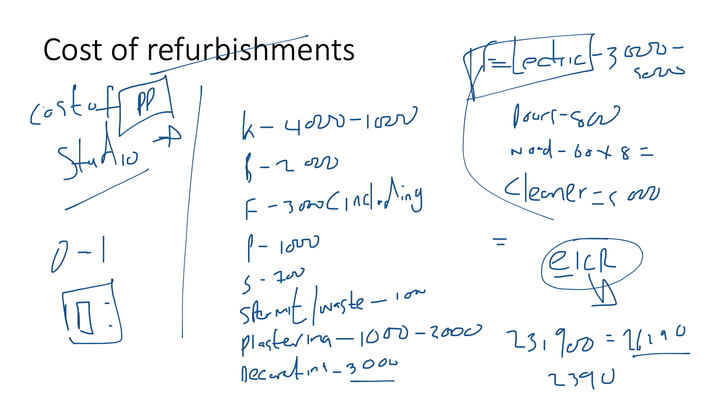 Cost of refurbishments
Cost of PP
Studio
0-1
K-4000-1000
B-2000
F-3000 (including
P-1000
S-700
/waste-100
Plastering-1000-2000
-3000
Electric-3000-
5000
Doors-800
-60x8=
Cleaner=
=
EICR
23,900=
2390